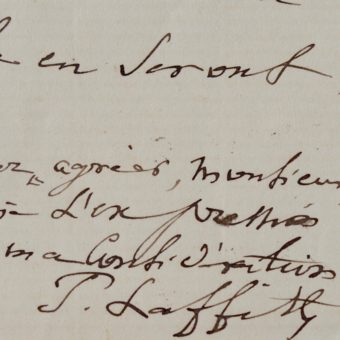 en seront
agréer, monsieur
l'expression
ma considération
P. Laffitte